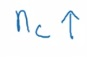 n_c ↑